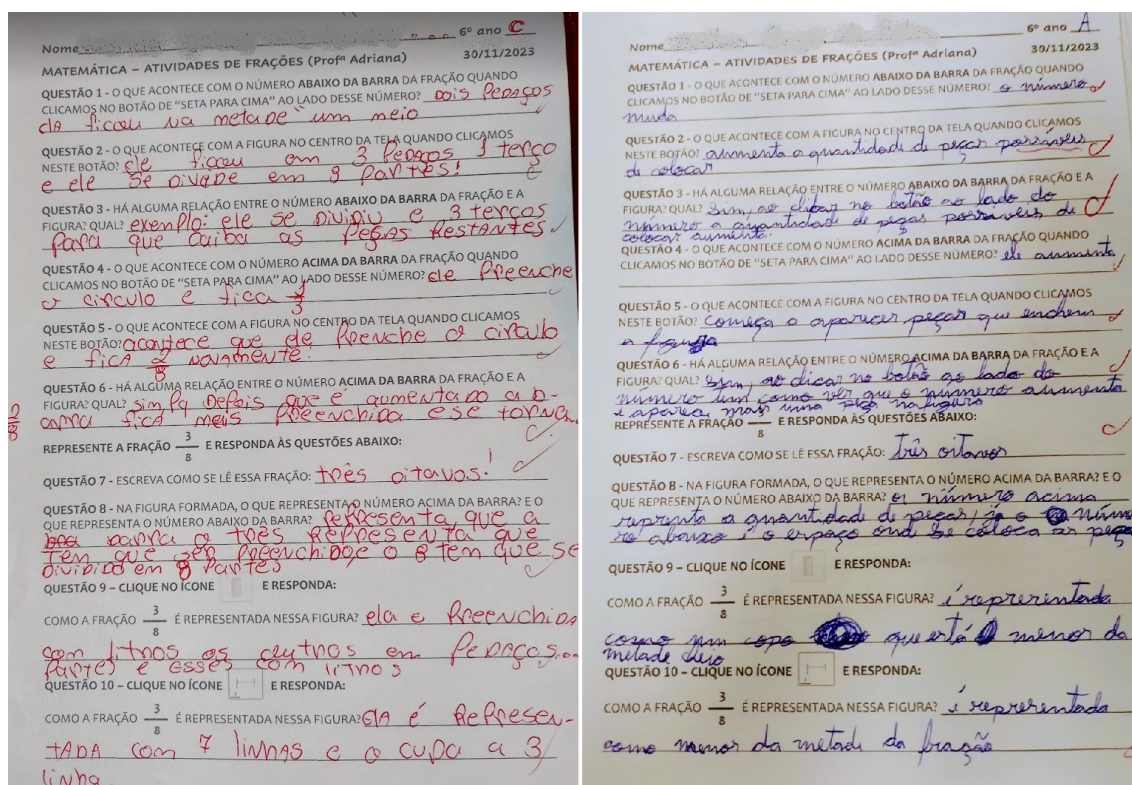 Nome 6º ano C
MATEMÁTICA – ATIVIDADES DE FRAÇÕES (Profª Adriana) 30/11/2023
QUESTÃO 1 - O QUE ACONTECE COM O NÚMERO ABAIXO DA BARRA DA FRAÇÃO QUANDO
CLICAMOS NO BOTÃO DE "SETA PARA CIMA" AO LADO DESSE NÚMERO? DOIS PEDAÇOS
ficou na metade um meio
QUESTÃO 2 - O QUE ACONTECE COM A FIGURA NO CENTRO DA TELA QUANDO CLICAMOS
NESTE BOTÃO? ele ficou em 3 PEDAÇOS 1 terço
e ele se divide em 8 partes!
QUESTÃO 3 - HÁ ALGUMA RELAÇÃO ENTRE O NÚMERO ABAIXO DA BARRA DA FRAÇÃO E A
FIGURA? QUAL? exemplo: ele se Dividiu e 3 terços
para que caiba as PEÇAS RESTANTES
QUESTÃO 4 - O QUE ACONTECE COM O NÚMERO ACIMA DA BARRA DA FRAÇÃO QUANDO
CLICAMOS NO BOTÃO DE "SETA PARA CIMA" AO LADO DESSE NÚMERO? ele Preenche
o circulo e fica 1/3
QUESTÃO 5 - O QUE ACONTECE COM A FIGURA NO CENTRO DA TELA QUANDO CLICAMOS
NESTE BOTÃO? acontece que ele o circulo
e fica 2/8 novamente.
QUESTÃO 6 - HÁ ALGUMA RELAÇÃO ENTRE O NÚMERO ACIMA DA BARRA DA FRAÇÃO E A
FIGURA? QUAL? sim Depois que e aumentado a b-
arra fica mais Preenchida e se torna
REPRESENTE A FRAÇÃO 3/8 E RESPONDA ÀS QUESTÕES ABAIXO:
QUESTÃO 7 - ESCREVA COMO SE LÊ ESSA FRAÇÃO: três oitavos!
QUESTÃO 8 - NA FIGURA FORMADA, O QUE REPRESENTA O NÚMERO ACIMA DA BARRA? E O
QUE REPRESENTA O NÚMERO ABAIXO DA BARRA? Representa que a
barra o três Representa que
tem que ser Preenchido, e o 8 tem que se
dividido em 8 Partes
QUESTÃO 9 – CLIQUE NO ÍCONE E RESPONDA:
COMO A FRAÇÃO 3/8 É REPRESENTADA NESSA FIGURA? ela e Preenchida
com litros os outros em Pedaços
partes e esses com litros
QUESTÃO 10 – CLIQUE NO ÍCONE E RESPONDA:
COMO A FRAÇÃO 3/8 É REPRESENTADA NESSA FIGURA? ela é Represen-
TADA com 7 linhas e o a 3
linha
Nome 6º ano A
MATEMÁTICA – ATIVIDADES DE FRAÇÕES (Profª Adriana) 30/11/2023
QUESTÃO 1 - O QUE ACONTECE COM O NÚMERO ABAIXO DA BARRA DA FRAÇÃO QUANDO
CLICAMOS NO BOTÃO DE "SETA PARA CIMA" AO LADO DESSE NÚMERO? o número
muda
QUESTÃO 2 - O QUE ACONTECE COM A FIGURA NO CENTRO DA TELA QUANDO CLICAMOS
NESTE BOTÃO? aumenta a quantidade de peças possíveis
de colocar
QUESTÃO 3 - HÁ ALGUMA RELAÇÃO ENTRE O NÚMERO ABAIXO DA BARRA DA FRAÇÃO E A
FIGURA? QUAL? Sim, ao clicar no botão ao lado do
número a quantidade de peças possíveis de
colocar aumenta.
QUESTÃO 4 - O QUE ACONTECE COM O NÚMERO ACIMA DA BARRA DA FRAÇÃO QUANDO
CLICAMOS NO BOTÃO DE "SETA PARA CIMA" AO LADO DESSE NÚMERO? ele aumenta
QUESTÃO 5 - O QUE ACONTECE COM A FIGURA NO CENTRO DA TELA QUANDO CLICAMOS
NESTE BOTÃO? Começa a aparecer peças que enchem
a figura
QUESTÃO 6 - HÁ ALGUMA RELAÇÃO ENTRE O NÚMERO ACIMA DA BARRA DA FRAÇÃO E A
FIGURA? QUAL? Sim, ao clicar no botão ao lado do
número tem como ver que o número aumenta
e aparece mais uma peça na figura
REPRESENTE A FRAÇÃO 3/8 E RESPONDA ÀS QUESTÕES ABAIXO:
QUESTÃO 7 - ESCREVA COMO SE LÊ ESSA FRAÇÃO: três oitavos
QUESTÃO 8 - NA FIGURA FORMADA, O QUE REPRESENTA O NÚMERO ACIMA DA BARRA? E O
QUE REPRESENTA O NÚMERO ABAIXO DA BARRA? o número acima
representa a quantidade de peças, já o núme
ro abaixo é o espaço onde se coloca as peças
QUESTÃO 9 – CLIQUE NO ÍCONE E RESPONDA:
COMO A FRAÇÃO 3/8 É REPRESENTADA NESSA FIGURA? é representada
como um copo que está menor da
metade cheio
QUESTÃO 10 – CLIQUE NO ÍCONE E RESPONDA:
COMO A FRAÇÃO 3/8 É REPRESENTADA NESSA FIGURA? é representada
como menor da metade da fração